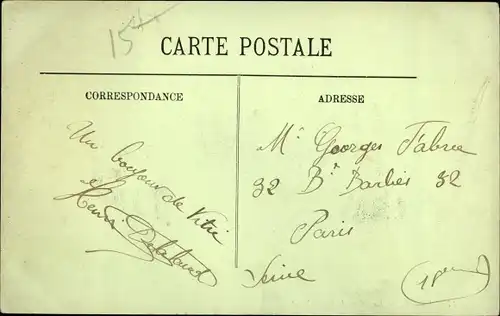 15
CARTE POSTALE
CORRESPONDANCE
ADRESSE
Un bonjour de Vitré
Henri
Mr Georges Fabre
32 Bd Barbès 32
Paris
Seine